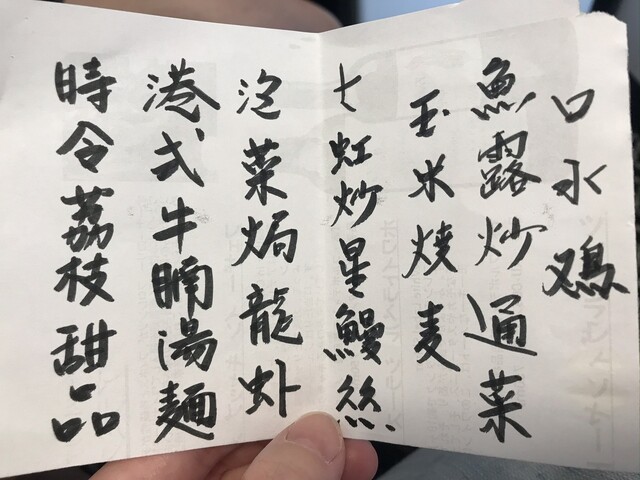 口水鸡
魚露炒通菜
玉米焼麦
七虹炒星鰻絲
泡菜焗龍虾
港式牛腩湯麵
時令荔枝甜品